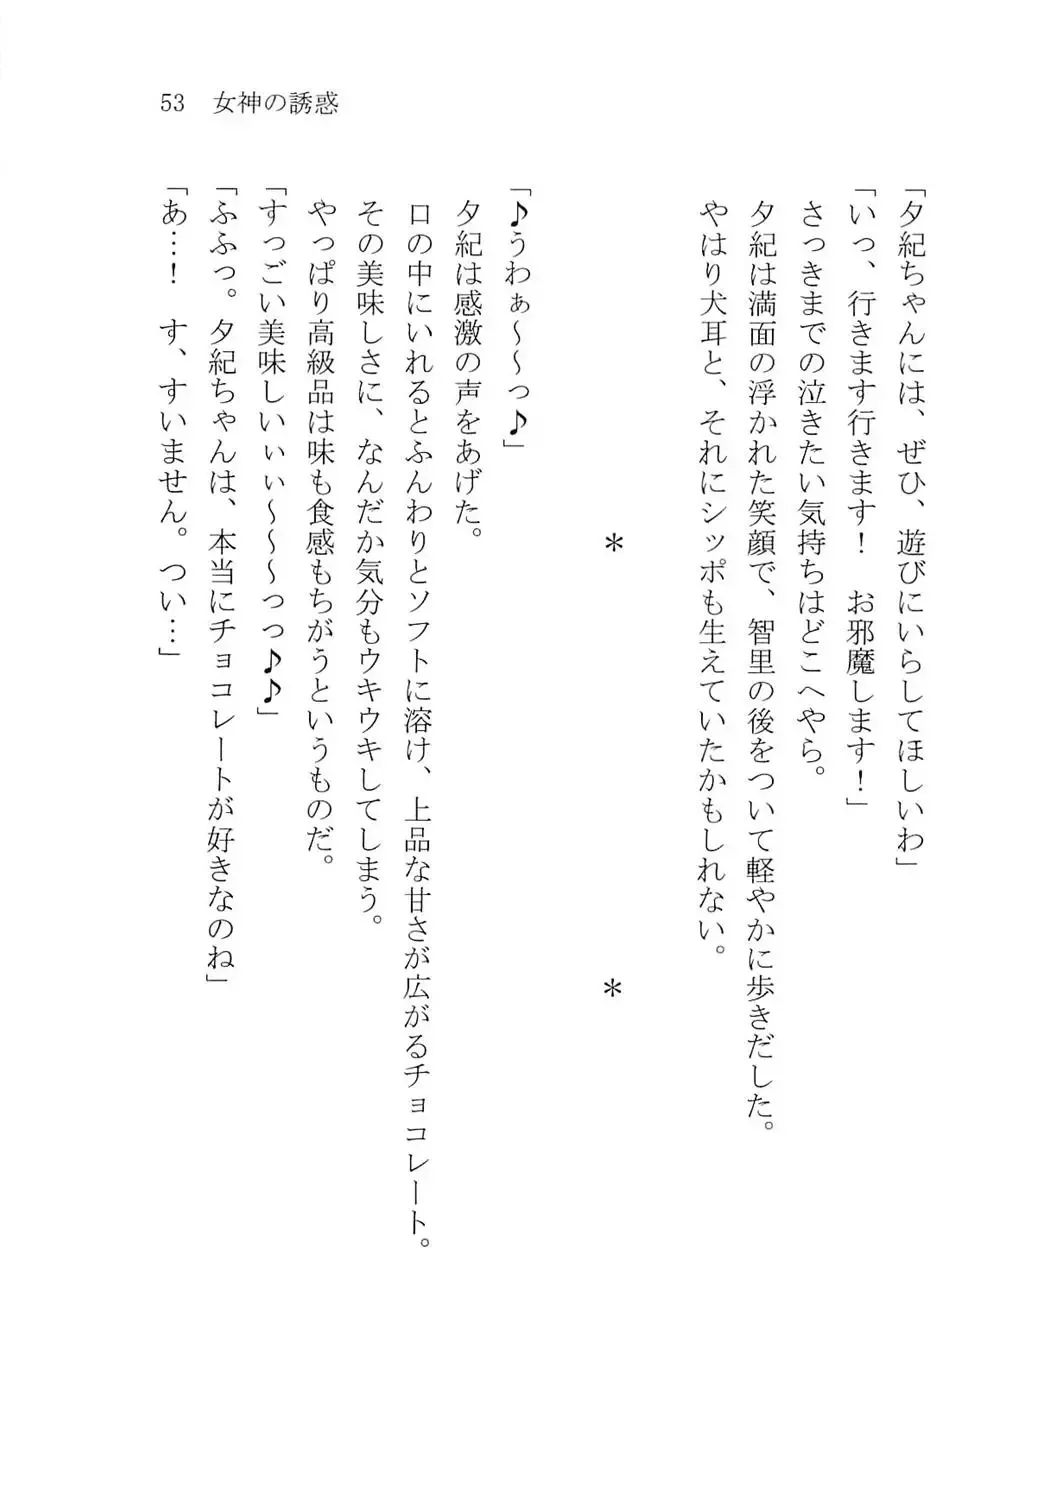 53　女神の誘惑
「夕紀ちゃんには、ぜひ、遊びにいらしてほしいわ」
「いっ、行きます行きます！　お邪魔します！」
さっきまでの泣きたい気持ちはどこへやら。
夕紀は満面の浮かれた笑顔で、智里の後をついて軽やかに歩きだした。
やはり犬耳と、それにシッポも生えていたかもしれない。
＊　＊
「♪うわぁ〜〜っ♪」
夕紀は感激の声をあげた。
口の中にいれるとふんわりとソフトに溶け、上品な甘さが広がるチョコレート。
その美味しさに、なんだか気分もウキウキしてしまう。
やっぱり高級品は味も食感もちがうというものだ。
「すっごい美味しいぃぃ〜〜〜っっ♪♪」
「ふふっ。夕紀ちゃんは、本当にチョコレートが好きなのね」
「あ…！　す、すいません。つい…」